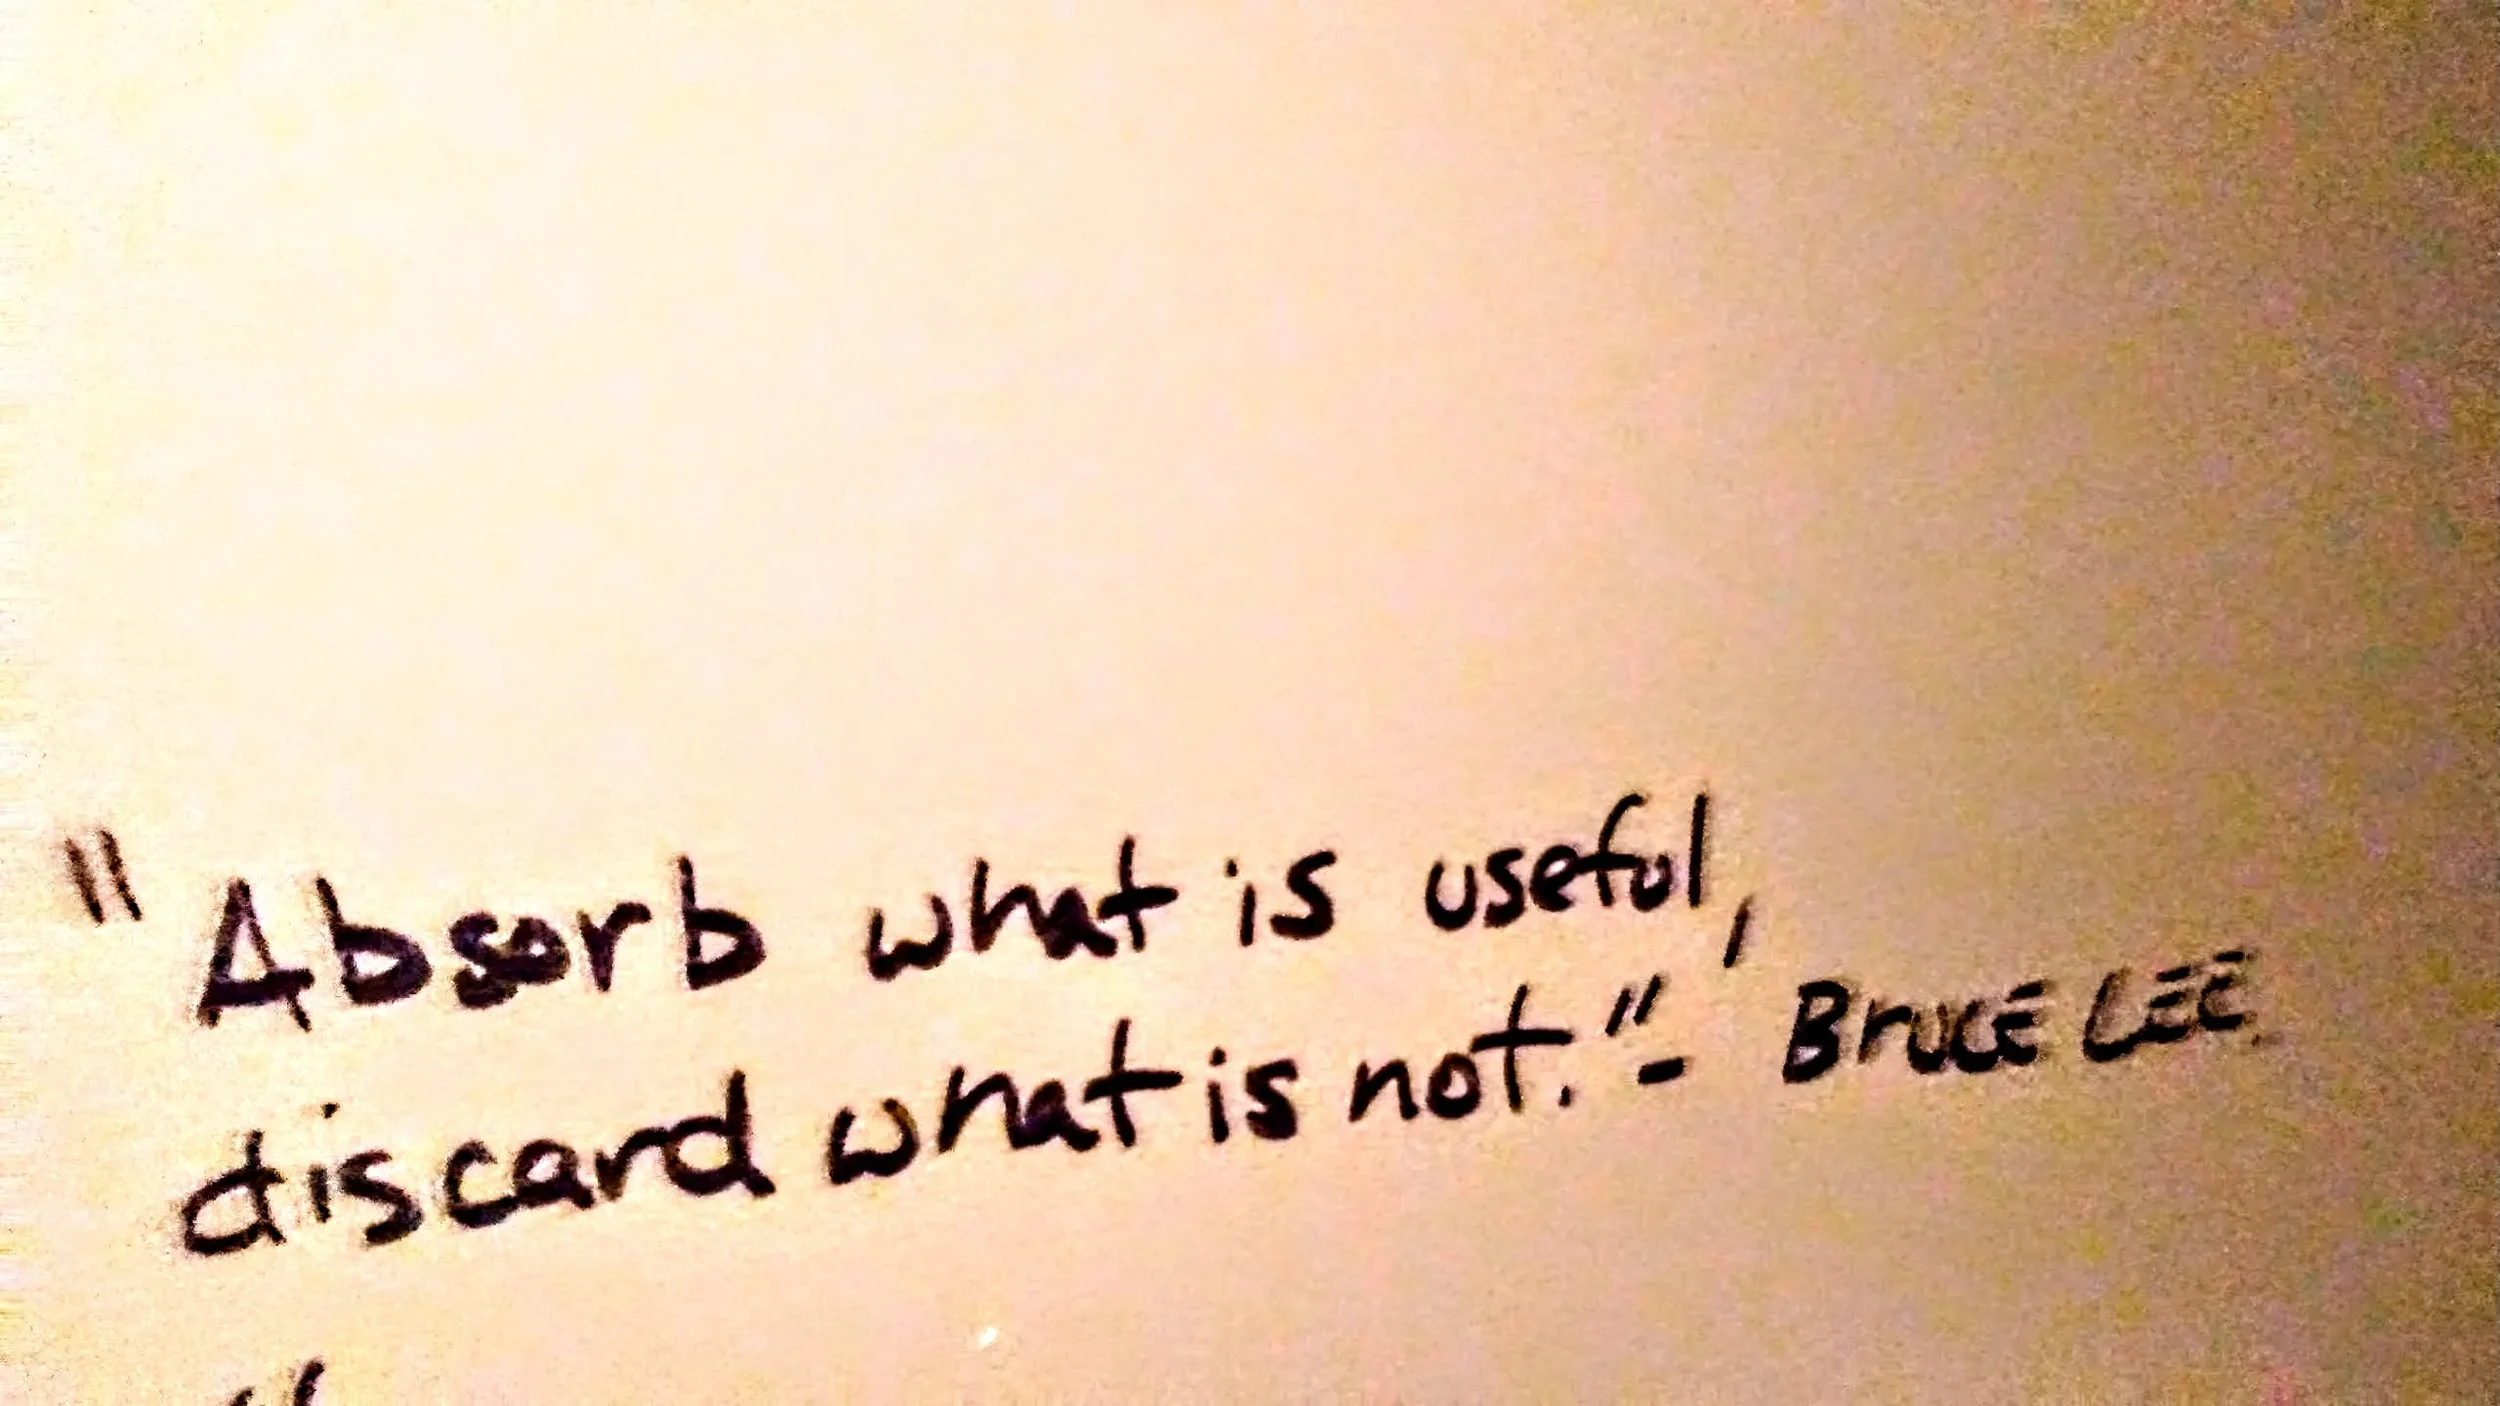 "Absorb what is useful,
discard what is not."- BrucE LEE
"